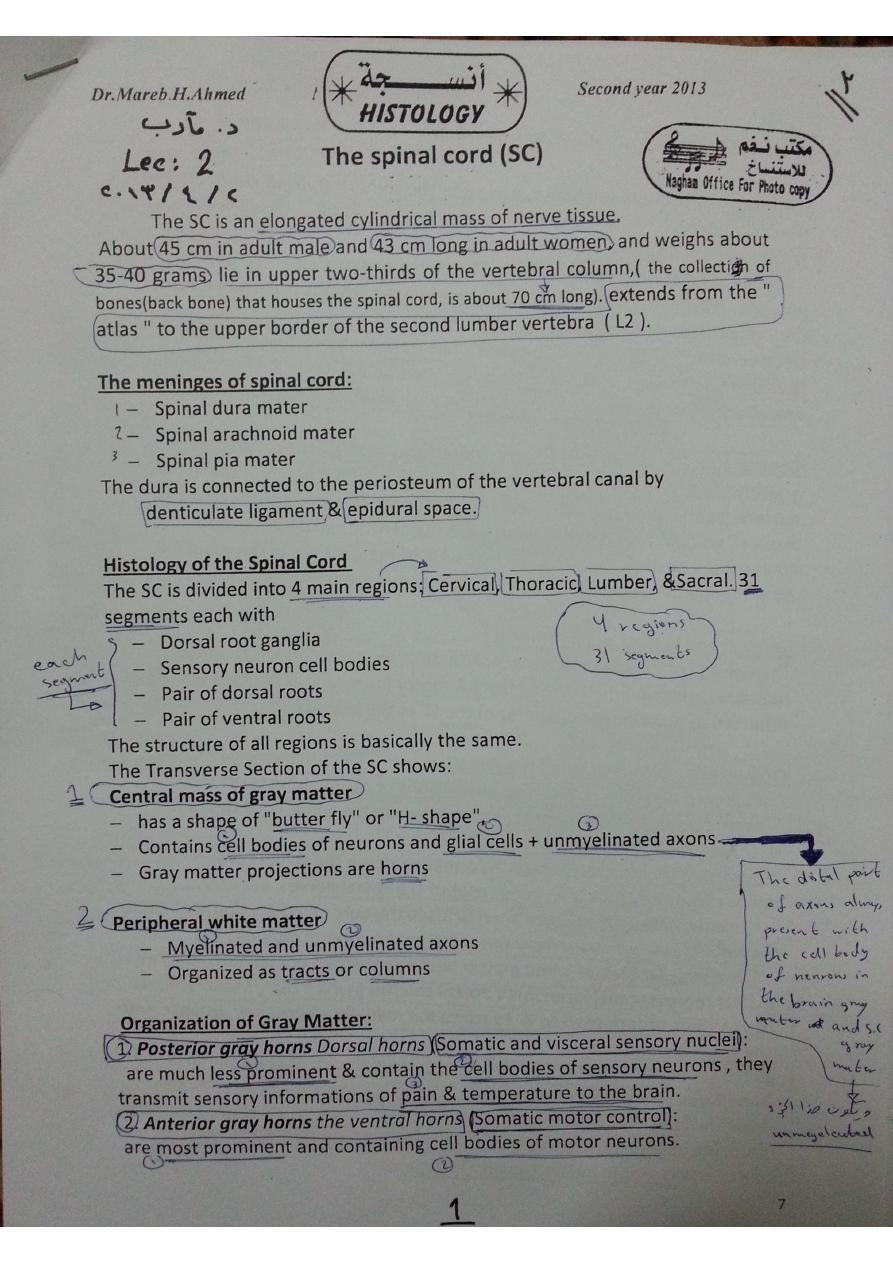 Dr.Mareb.H.Ahmed
أنسجة
HISTOLOGY
Second year 2013
٢
د. مآرب
Lec: 2
٢٠١٣/٤/٢
The spinal cord (SC)
مكتب نغم
للاستنساخ
Nagham Office For Photo copy
The SC is an elongated cylindrical mass of nerve tissue.
About 45 cm in adult male and 43 cm long in adult women, and weighs about
35-40 grams, lie in upper two-thirds of the vertebral column,( the collection of
bones(back bone) that houses the spinal cord, is about 70 cm long). extends from the "
atlas " to the upper border of the second lumber vertebra ( L2 ).
The meninges of spinal cord:
1 – Spinal dura mater
2 – Spinal arachnoid mater
3 – Spinal pia mater
The dura is connected to the periosteum of the vertebral canal by
denticulate ligament & epidural space.
Histology of the Spinal Cord
The SC is divided into 4 main regions: Cervical, Thoracic, Lumber, &Sacral. 31
segments each with
– Dorsal root ganglia
– Sensory neuron cell bodies
– Pair of dorsal roots
– Pair of ventral roots
each
segment
4 regions
31 segments
The structure of all regions is basically the same.
The Transverse Section of the SC shows:
1 Central mass of gray matter
– has a shape of "butter fly" or "H- shape".
– Contains cell bodies of neurons and glial cells + unmyelinated axons
– Gray matter projections are horns
2 Peripheral white matter
– Myelinated and unmyelinated axons
– Organized as tracts or columns
The distal part
of axons always
present with
the cell body
of neurons in
the brain gray
matter and s.c
gray
matter
ويكون هذا الجزء
unmeyelenated
Organization of Gray Matter:
1. Posterior gray horns Dorsal horns (Somatic and visceral sensory nuclei):
are much less prominent & contain the cell bodies of sensory neurons , they
transmit sensory informations of pain & temperature to the brain.
2. Anterior gray horns the ventral horns (Somatic motor control):
are most prominent and containing cell bodies of motor neurons.
1
7